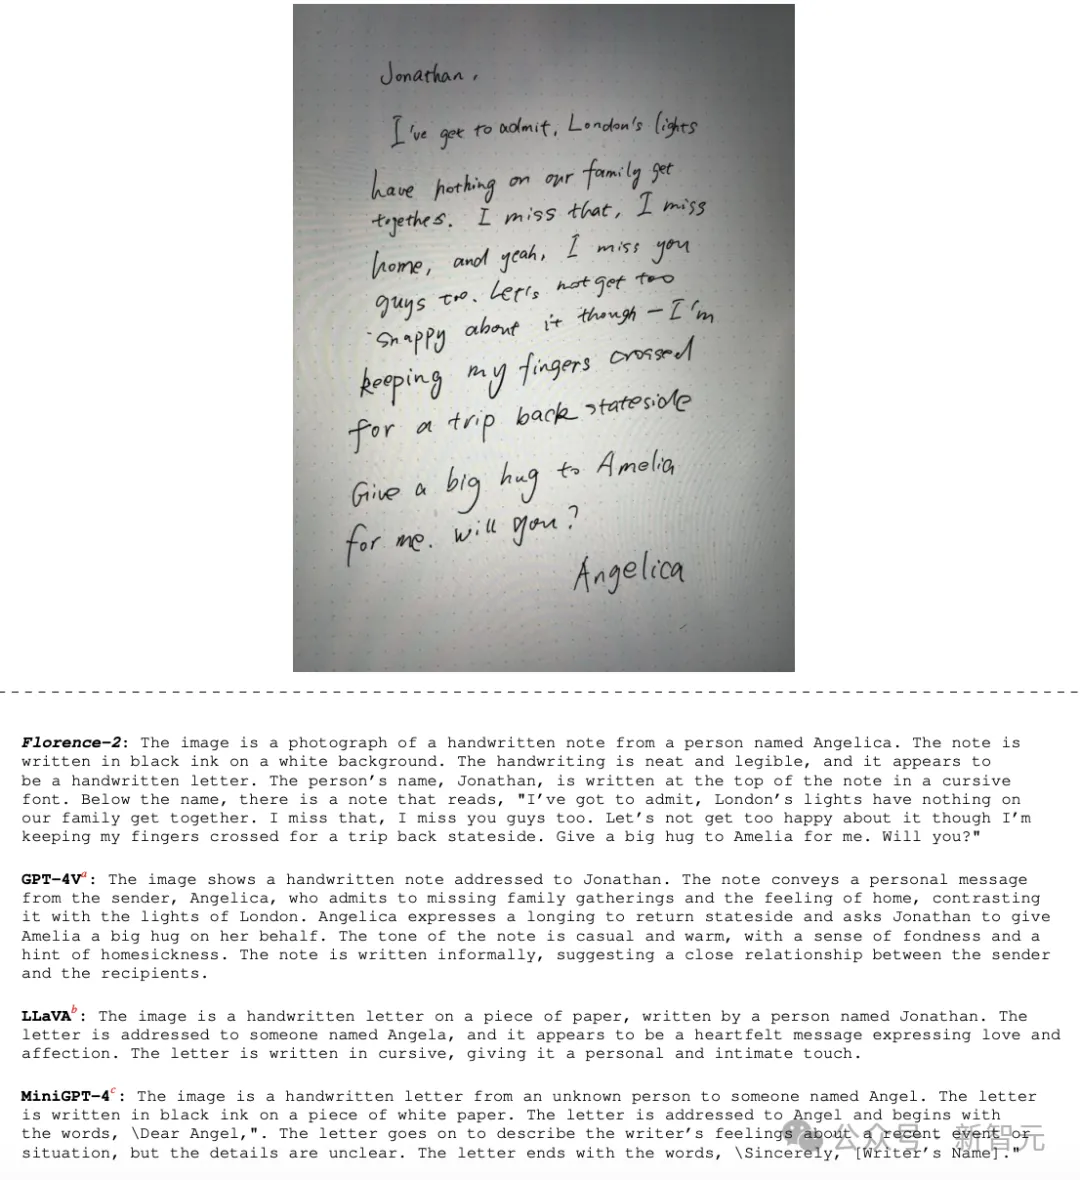 Jonathan,
I've get to admit, London's lights
have nothing on our family get
togethes. I miss that, I miss
home, and yeah, I miss you
guys too. Let's not get too
snappy about it though – I'm
keeping my fingers crossed
for a trip back stateside
Give a big hug to Amelia
for me. will you?
Angelica
Florence-2: The image is a photograph of a handwritten note from a person named Angelica. The note is
written in black ink on a white background. The handwriting is neat and legible, and it appears to
be a handwritten letter. The person's name, Jonathan, is written at the top of the note in a cursive
font. Below the name, there is a note that reads, "I've got to admit, London's lights have nothing on
our family get together. I miss that, I miss you guys too. Let's not get too happy about it though I'm
keeping my fingers crossed for a trip back stateside. Give a big hug to Amelia for me. Will you?"
GPT-4Va: The image shows a handwritten note addressed to Jonathan. The note conveys a personal message
from the sender, Angelica, who admits to missing family gatherings and the feeling of home, contrasting
it with the lights of London. Angelica expresses a longing to return stateside and asks Jonathan to give
Amelia a big hug on her behalf. The tone of the note is casual and warm, with a sense of fondness and a
hint of homesickness. The note is written informally, suggesting a close relationship between the sender
and the recipients.
LLaVAb: The image is a handwritten letter on a piece of paper, written by a person named Jonathan. The
letter is addressed to someone named Angela, and it appears to be a heartfelt message expressing love and
affection. The letter is written in cursive, giving it a personal and intimate touch.
MiniGPT-4c: The image is a handwritten letter from an unknown person to someone named Angel. The letter
is written in black ink on a piece of white paper. The letter is addressed to Angel and begins with
the words, \Dear Angel,". The letter goes on to describe the writer's feelings about a recent event or
situation, but the details are unclear. The letter ends with the words, \Sincerely, [Writer's Name]."
公众号 · 新智元